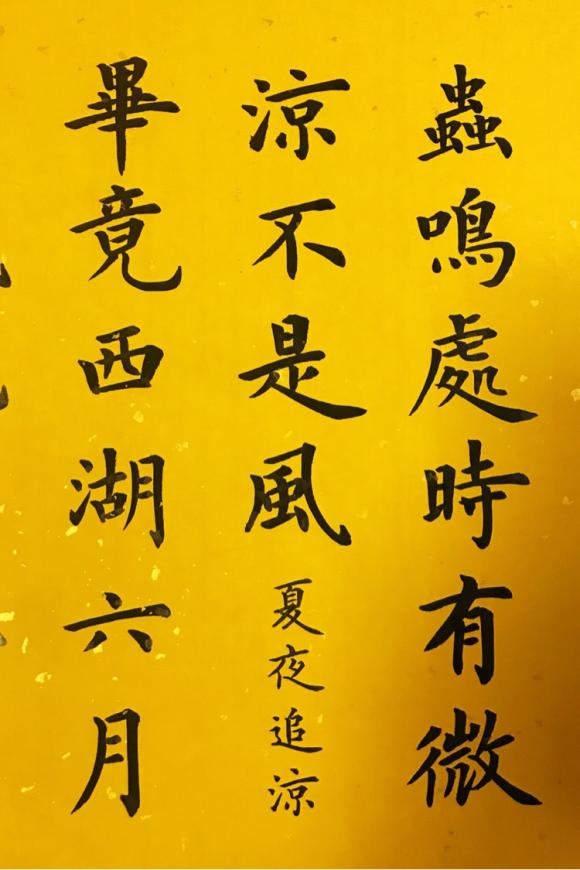 蟲鳴處時有微
涼不是風 夏夜追涼
畢竟西湖六月